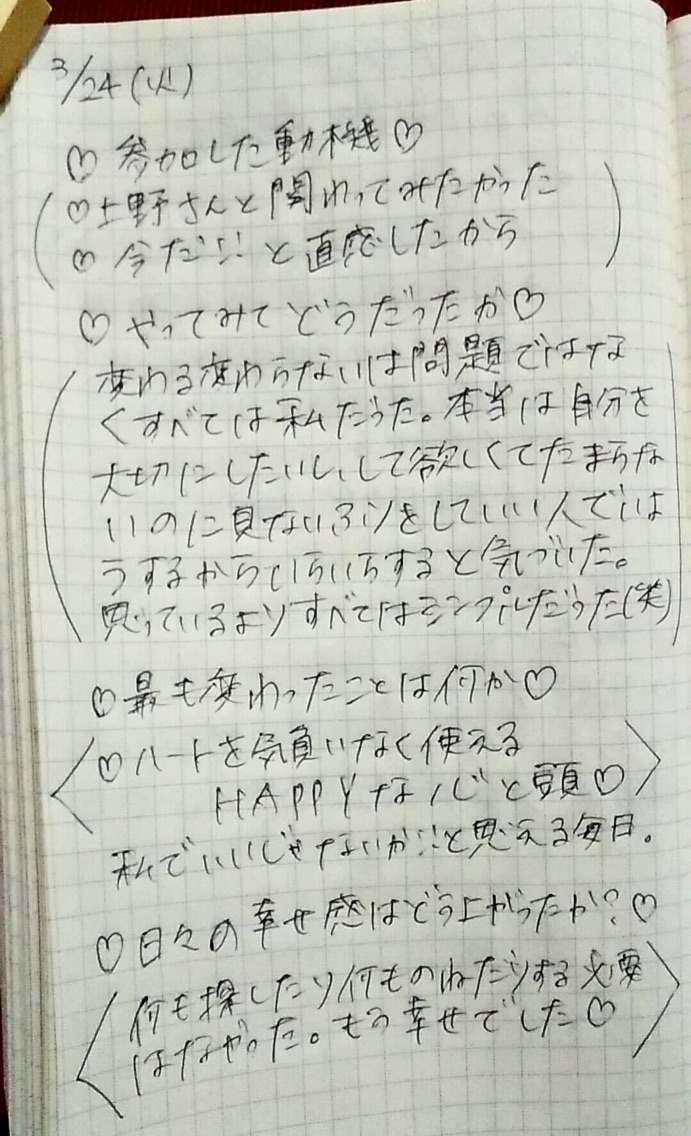 3/24(火)
♡ 参加した動機 ♡
♡ 上野さんと関わってみたかった
♡ 今だ!! と直感したから
♡ やってみてどうだったか ♡
変わる変わらないは問題ではな
くすべては私だった。本当は自分を
大切にしたいし、して欲しくてたまらな
いのに見ないふりをしていい人でいよ
うするからいらいらすると気づいた。
思っているよりすべてはシンプルだった(笑)
♡ 最も変わったことは何か ♡
♡ ハートを気負いなく使える
HAPPYな心と頭♡
私でいいじゃないか!!と思える毎日。
♡ 日々の幸せ感はどう上がったか? ♡
何も探したり何ものねだりする必要
はなかった。もう幸せでした♡